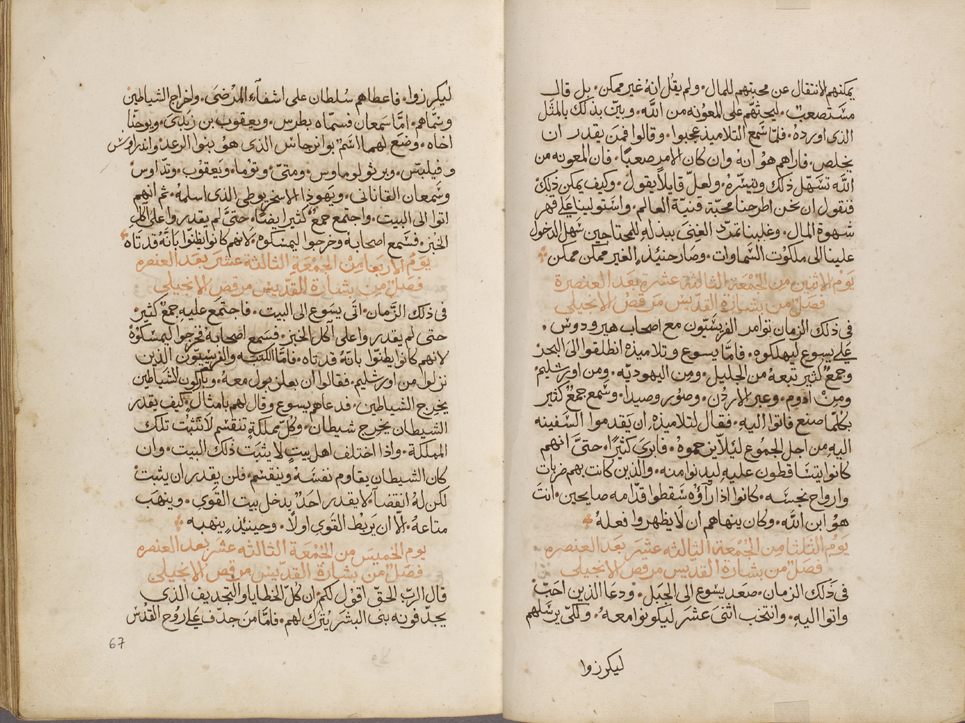 يمكنهم الانتقال عن محبتهم للمال • ولم يقل انه غير ممكن • بل قال
مستصعب • ليحثهم على المعونه من الله • وبين بذلك بالمثل
الذي اورده • فلما سمع التلاميذ عجبوا • وقالوا فمن يقدر ان
يخلص • فاراهم هو انه وان كان الامر صعبًا • فان المعونه من
الله تسهل ذلك وتيسره • ولعل قايلاً يقول • وكيف يمكن ذلك
فنقول ان نحن اطرحنا محبة قنية العالم • واستولينا على قهر
شهوة المال • وغلبنا تمرّد الغنى ببذله للمحتاجين سهل الدخول
علينا الى ملكوت السماوات • وصار حنيئذٍ الغير ممكن ممكن
يوم الاثنين من الجمعة الثالثه عشرة بعد العنصرة
فصل من بشارة القديس مرقص الانجيلى
فى ذلك الزمان توامر الفريسيون مع اصحاب هيرودوس •
على يسوع ليهلكوه • فاما يسوع وتلاميذه انطلقوا الى البحر
وجمع كثير تبعه من الجليل • ومن اليهوديه • ومن اورشليم
ومن ادوم • وعبر الاردن • وصور وصيدا • وسمع جمع كثير
بكلما صنع فاتوا اليه • فقال لتلاميذه ان يقدموا السفينه
اليه من اجل الجموع ليلا يزحموه • فابرى كثيرًا • حتى انهم
كانوا يتساقطون عليه ليدنوا منه • والذين كانت بهم ضربات
وارواح نجسه • كانوا اذا رآؤه سقطوا قدامه صايحين • انت
هو ابن الله • وكان ينهاهم ان لا يظهروا فعله
يوم الثلثا من الجمعة الثالثه عشر بعد العنصره
فصل من بشارة القديس مرقص الانجيلى
فى ذلك الزمان • صعد يسوع الى الجبل • ودعا الذين احب
واتوا اليه • وانتخب اثنى عشر ليكونوا معه • ولكى يرسلهم
ليكرزوا
ليكرزوا • فاعطاهم سلطان على اشفآء المرضى • واخراج الشياطين
وسماهم • امّا سمعان فسماه بطرس • ويعقوب بن زبدى • ويوحنا
اخاه • وضع لهما اسم بوانرجاس الذى هو بنوا الرعد • واندراوس
وفيلبس • وبرثولوماوس • ومتى • وتوما • ويعقوب • وتداوس
وسمعان القانانى • ويهوذا الاسخريوطى الذى اسلمه • ثم انهم
اتوا الى البيت • واجتمع جمع كثير ايضًا • حتى لم يقدروا على اكل
الخبز • فسمع اصحابه وخرجوا ليمسكوه • لانهم كانوا يظنوا بانه قد تاه
يوم الاربعا من الجمعة الثالثة عشر بعد العنصره
فصل من بشارة القديس مرقص الانجيلى
فى ذلك الزمان • اتى يسوع الى البيت • فاجتمع عليه جمع كثير
حتى لم يقدروا على اكل الخبز • فسمع اصحابه فخرجوا ليمسكوه
لانهم كانوا يظنوا بانه قد تاه • فامّا الكتبه والفريسيون الذين
نزلوا من اورشليم • فقالوا ان بعلزبول معه • وباركون الشياطين
يخرج الشياطين • فدعاهم يسوع وقال لهم بامثال • كيف يقدر
الشيطان يخرج شيطان • وكل مملكة تنقسم لا تثبت تلك
المملكة • واذا اختلف اهل بيت لا يثبت ذلك البيت • وان
كان الشيطان يقاوم نفسه • وينقسم • فلن يقدر ان يثبت
لكن له انقضا • لا يقدر احد يدخل بيت القوى • وينهب
متاعه • الا ان يربط القوى اولاً • وحينيذٍ ينهبه •
يوم الخميس من الجمعة الثالثه عشر بعد العنصره
فصل من بشارة القديس مرقص الانجيلى
قال الرب الحق اقول لكم • ان كل الخطايا والتجديف الذى
يجدفونه بنى البشر يترك لهم • فاما من جدف على روح القدس
67